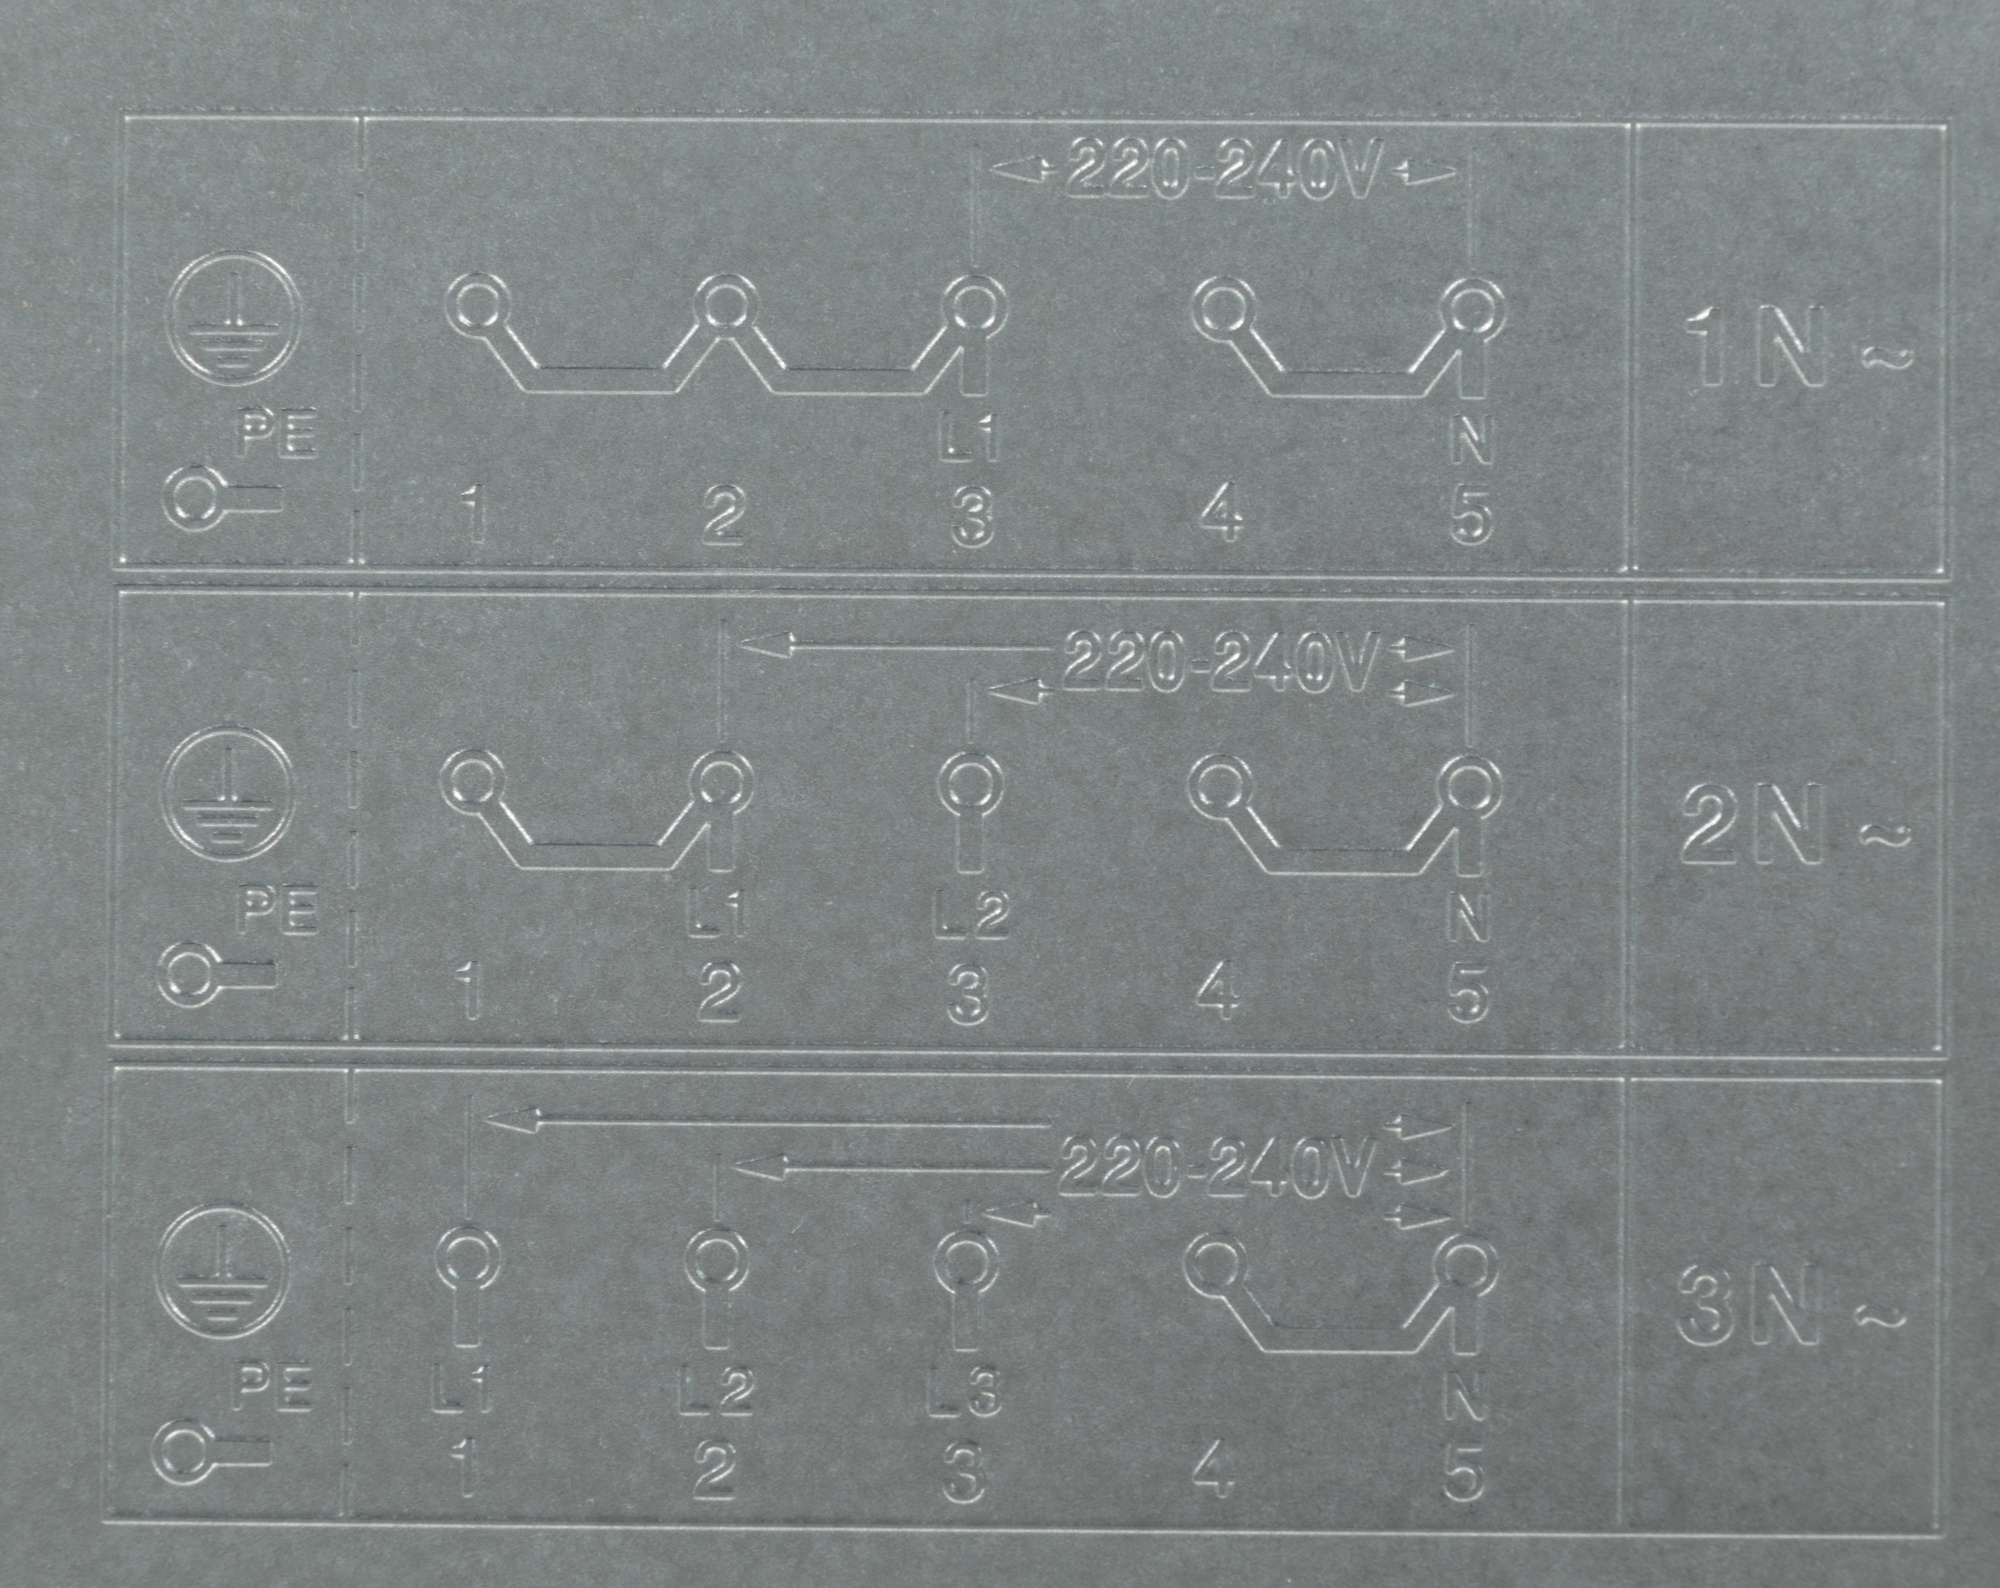 220-240V
1N ~
PE
L1
N
1 2 3 4 5
220-240V
2N ~
PE
L1 L2 N
1 2 3 4 5
220-240V
3N ~
PE
L1 L2 L3 N
1 2 3 4 5